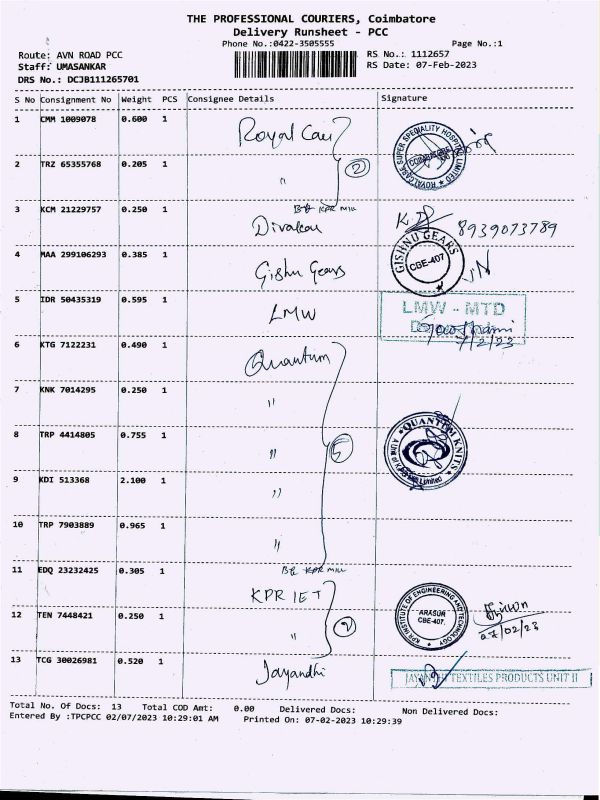 THE PROFESSIONAL COURIERS, Coimbatore
Delivery Runsheet - PCC
Phone No.:0422-3505555
Page No.:1
Route: AVN ROAD PCC
RS No.: 1112657
Staff: UMASANKAR
RS Date: 07-Feb-2023
DRS No.: DCJB111265701
S No Consignment No Weight PCS Consignee Details Signature
1 CMM 1009078 0.600 1 Royal Care
ROYALCARE SUPER SPECIALITY HOSPITAL LIMITED
COIMBATORE
2 TRZ 65355768 0.205 1 "
2
B/f KPR Mill
3 KCM 21229757 0.250 1 Divakar 8939073789
4 MAA 299106293 0.385 1 Gishu Gears
GISHNU GEARS
CBE-407
5 IDR 50435319 0.595 1 LMW
LMW - MTD
7/2/23
6 KTG 7122231 0.490 1 Quantum
7 KNK 7014295 0.250 1 "
8 TRP 4414805 0.755 1 "
5
QUANTUM KNITS
9 KDI 513368 2.100 1 "
10 TRP 7903889 0.965 1 "
B/f KPR Mill
11 EDQ 23232425 0.305 1 KPR IET
KPR INSTITUTE OF ENGINEERING AND TECHNOLOGY
ARASUR
CBE-407.
12 TEN 7448421 0.250 1 "
2
07/02/23
13 TCG 30026981 0.520 1 Jayandhi
TEXTILES PRODUCTS UNIT II
Total No. Of Docs: 13 Total COD Amt: 0.00 Delivered Docs: Non Delivered Docs:
Entered By :TPCPCC 02/07/2023 10:29:01 AM Printed On: 07-02-2023 10:29:39